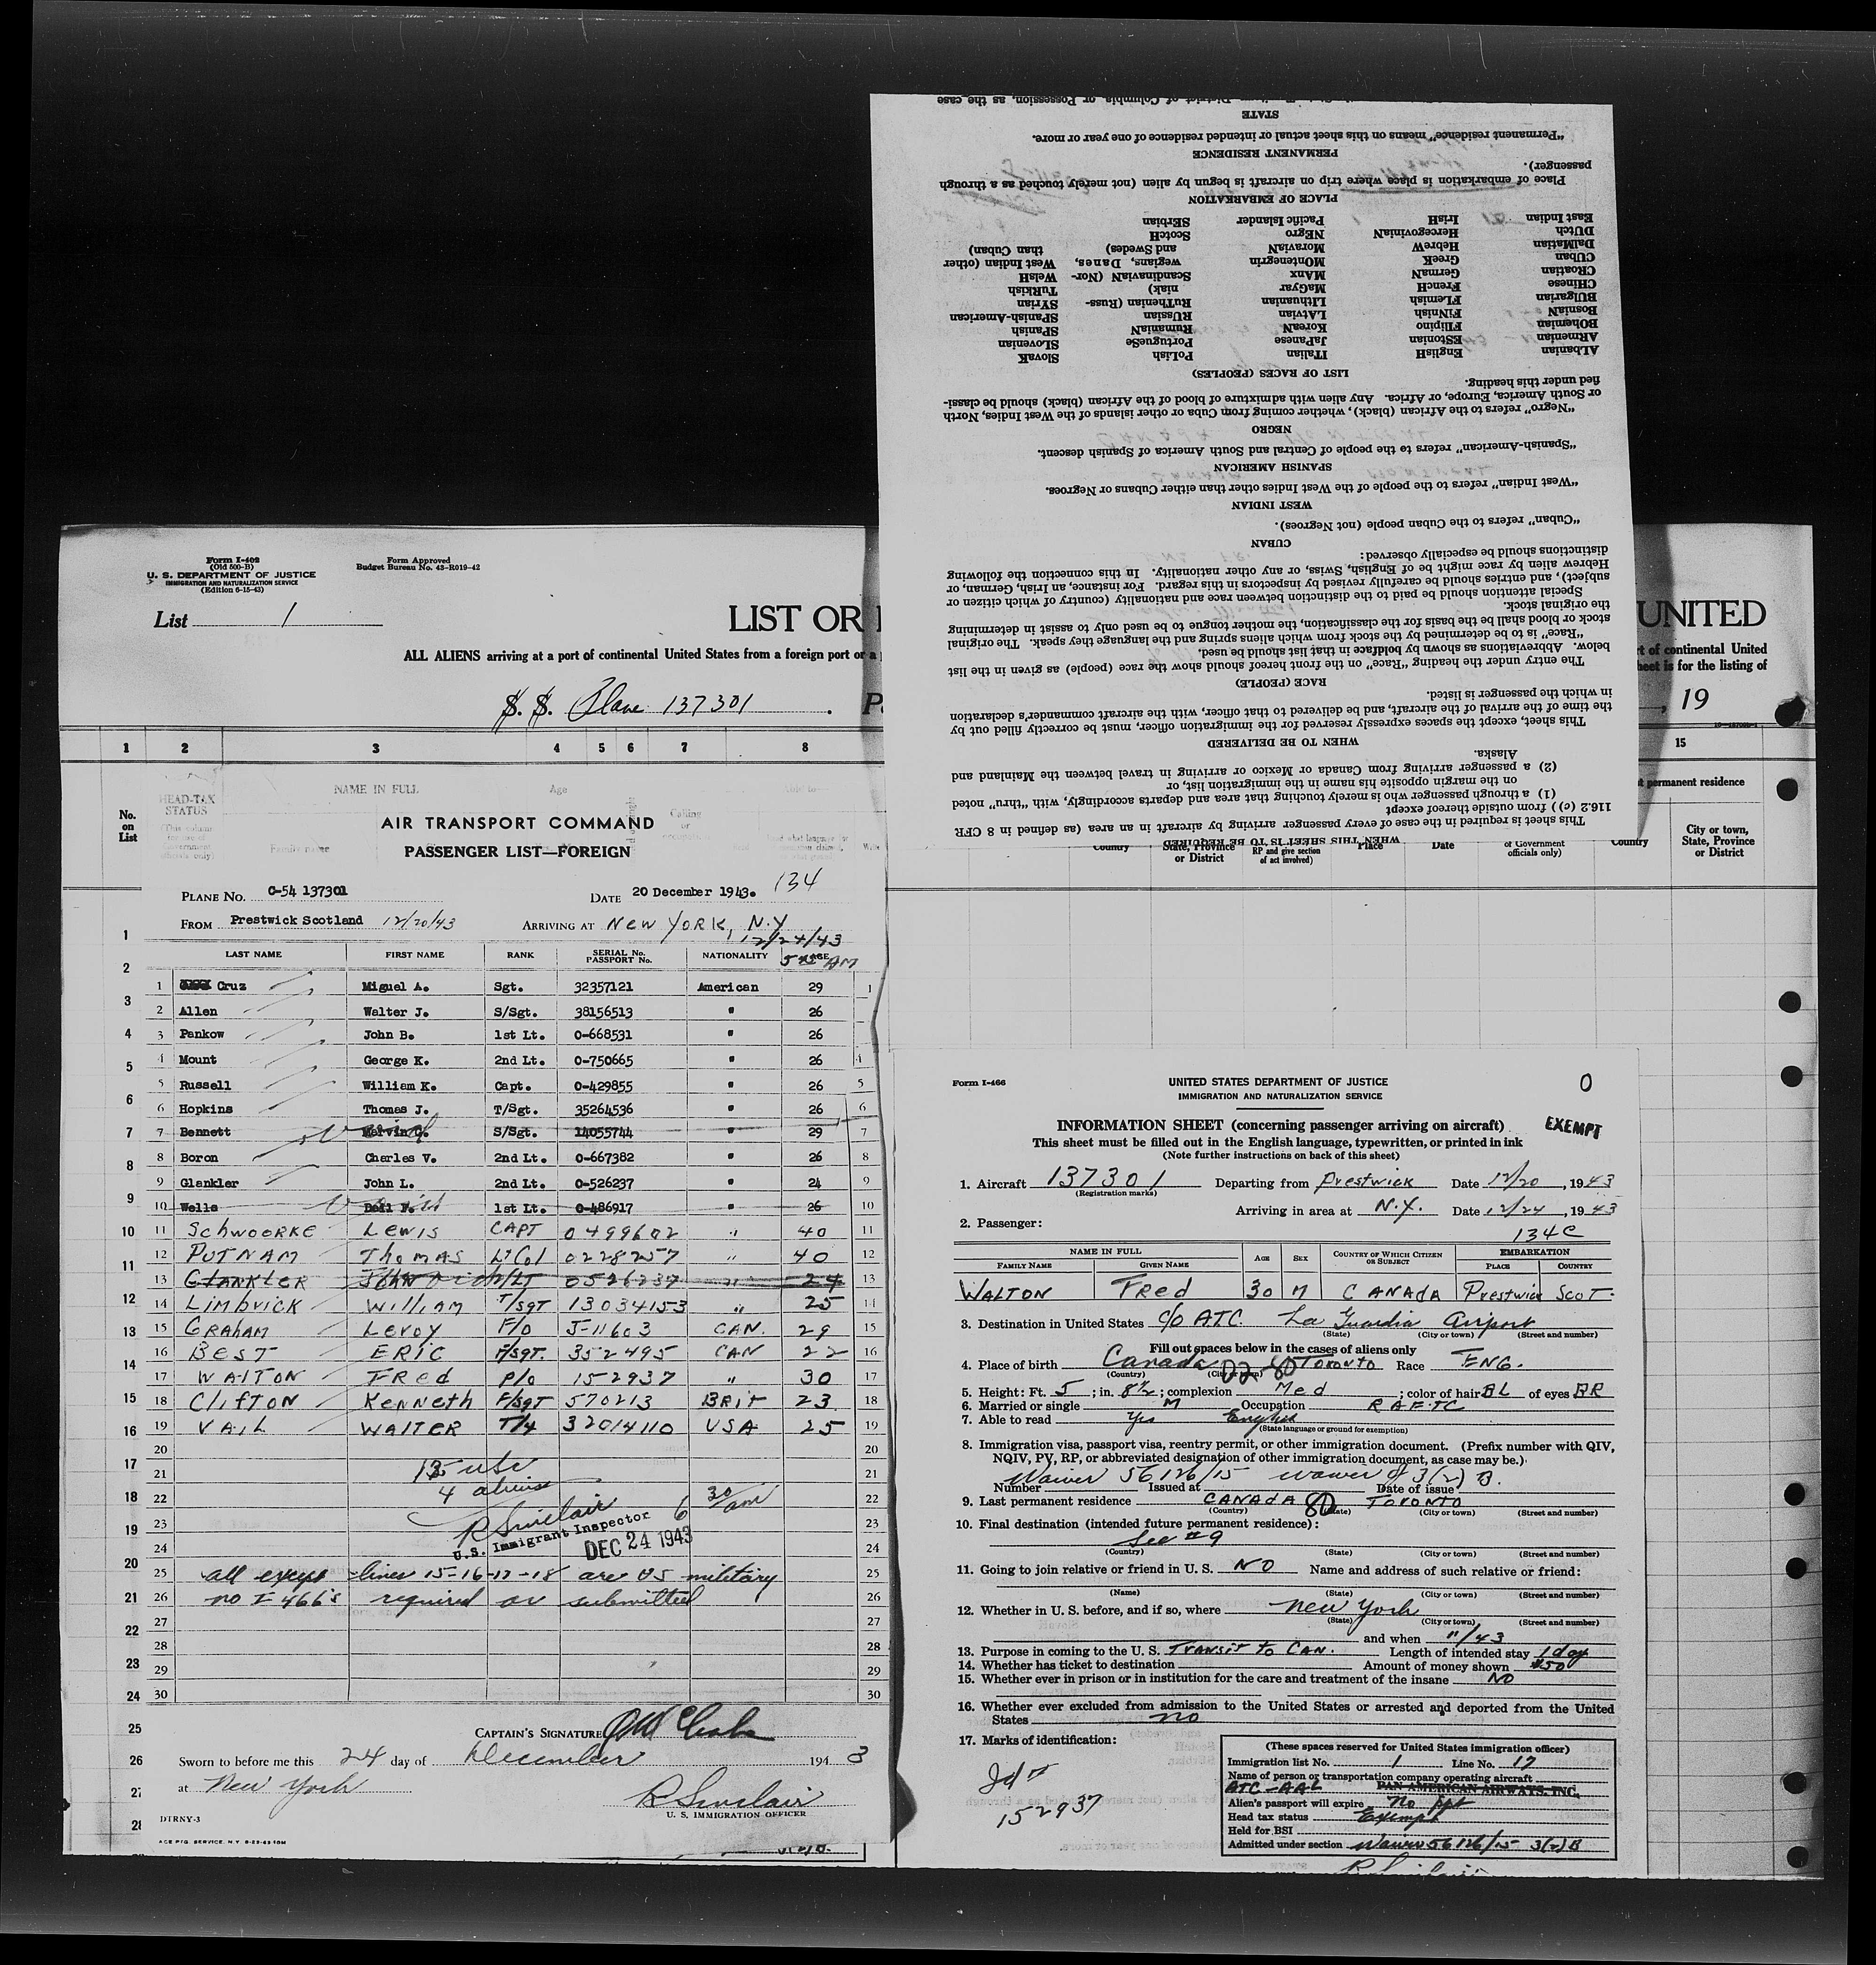 Form I-402
(Old 500-B)
U. S. DEPARTMENT OF JUSTICE
IMMIGRATION AND NATURALIZATION SERVICE
(Edition 6-15-43)
Form Approved
Budget Bureau No. 43-R019-42
List 1
LIST OR
UNITED
ALL ALIENS arriving at a port of continental United States from a foreign port or a
rt of continental United
heet is for the listing of
S. S. Plane 137301
, 19
1 2 3 4 5 6 7 8 15
HEAD-TAX STATUS
NAME IN FULL
Age
Family name
Calling or
No. on List
permanent residence
Country
State, Province or District
RP and give section of act involved)
Place
Date
of Government officials only)
Country
City or town, State, Province or District
AIR TRANSPORT COMMAND
PASSENGER LIST—FOREIGN
PLANE NO. C-54 137301 DATE 20 December 1943. 134
FROM Prestwick Scotland 12/20/43 ARRIVING AT NEW YORK, N.Y
12/24/43
LAST NAME FIRST NAME RANK SERIAL No. PASSPORT No. NATIONALITY AGE
1 Cruz Miguel A. Sgt. 32357121 American 29 1
2 Allen Walter J. S/Sgt. 38156513 " 26
3 Pankow John B. 1st Lt. O-668531 " 26
4 Mount George K. 2nd Lt. O-750665 " 26 4
5 Russell William K. Capt. O-429855 " 26 5
6 Hopkins Thomas J. T/Sgt. 35264536 " 26 6
7 Bennett Marvin G. S/Sgt. 14055744 " 29 7
8 Boron Charles V. 2nd Lt. O-667382 " 26 8
9 Glankler John L. 2nd Lt. O-526237 " 24 9
10 Wells 1st Lt. O-486917 " 26 10
11 SCHWOERKE LEWIS CAPT 0499602 " 40 11
12 PUTNAM THOMAS Lt Col 0228257 " 40 12
13 GLANKLER JOHN 0526237 " 24 13
14 LIMBRICK WILLIAM T/SGT 13034153 " 25 14
15 GRAHAM LEROY F/O J-11603 CAN. 29 15
16 BEST ERIC F/SGT. 352495 CAN 22 16
17 WALTON FRED P/O 152937 " 30 17
18 CLIFTON KENNETH F/SGT 570213 BRIT 23 18
19 VAIL WALTER T/4 32014110 USA 25 19
20 20
21 21
22 22
23 23
24 24
13 USC
4 aliens
R Sinclair 6 30/am
U.S. Immigrant Inspector
DEC 24 1943
25 all except lines 15-16-17-18 are US military 25
26 no I-466's required or submitted 26
27 27
28 28
29 29
30 30
1
2
3
4
5
6
7
8
9
10
11
12
13
14
15
16
17
18
19
20
21
22
23
24
25
26
27
28
CAPTAIN'S SIGNATURE
Sworn to before me this 24 day of December 1943
at New York
R Sinclair
U. S. IMMIGRATION OFFICER
DTRNY-3
ACE PTG. SERVICE, N.Y. 8-23-43 10M
WHEN THIS SHEET IS TO BE REQUIRED
This sheet is required in the case of every passenger arriving by aircraft in an area (as defined in 8 CFR
116.2 (c)) from outside thereof except
(1) a through passenger who is merely touching that area and departs accordingly, with "thru" noted
on the margin opposite his name in the immigration list, or
(2) a passenger arriving from Canada or Mexico or arriving in travel between the Mainland and
Alaska.
WHEN TO BE DELIVERED
This sheet, except the spaces expressly reserved for the immigration officer, must be correctly filled out by
the time of the arrival of the aircraft, and be delivered to that officer, with the aircraft commander's declaration
in which the passenger is listed.
RACE (PEOPLE)
The entry under the heading "Race" on the front hereof should show the race (people) as given in the list
below. Abbreviations as shown by boldface in that list should be used.
"Race" is to be determined by the stock from which aliens spring and the language they speak. The original
stock or blood shall be the basis for the classification, the mother tongue to be used only to assist in determining
the original stock.
Special attention should be paid to the distinction between race and nationality (country of which citizen or
subject), and entries should be carefully revised by inspectors in this regard. For instance, an Irish, German, or
Hebrew alien by race might be of English, Swiss, or any other nationality. In this connection the following
distinctions should be especially observed:
CUBAN
"Cuban" refers to the Cuban people (not Negroes).
WEST INDIAN
"West Indian" refers to the people of the West Indies other than either Cubans or Negroes.
SPANISH AMERICAN
"Spanish-American" refers to the people of Central and South America of Spanish descent.
NEGRO
"Negro" refers to the African (black), whether coming from Cuba or other islands of the West Indies, North
or South America, Europe, or Africa. Any alien with admixture of blood of the African (black) should be classi-
fied under this heading.
LIST OF RACES (PEOPLES)
ALbanian EnglisH ITalian PoLish SlovaK
ARmenian EStonian JaPanese PortugueSe SLOvenian
BOhemian FIlipino KoreaN RumaniaN SPanish
BosniaN FiNnish LAtvian RUssian SPanish-American
BUlgarian FLemish LIthuanian RuThenian (Russ- SYrian
CHinese FrencH MaGyar niak) TuRkish
CRoatian GermaN MAnx ScandinaviaN (Nor- WelsH
CUban GreeK MOntenegrin wegians, Danes, West Indian (other
DalMatian HebreW MoraviaN and Swedes) than Cuban)
DUtch HercegoviniaN NEgro ScotcH
East Indian IrisH Pacific Islander SErbian
PLACE OF EMBARKATION
Place of embarkation is place where trip on aircraft is begun by alien (not merely touched as a through
passenger).
PERMANENT RESIDENCE
"Permanent residence" means on this sheet actual or intended residence of one year or more.
STATE
District of Columbia, or Possession, as the case
Form I-466
UNITED STATES DEPARTMENT OF JUSTICE
IMMIGRATION AND NATURALIZATION SERVICE
0
INFORMATION SHEET (concerning passenger arriving on aircraft)
EXEMPT
This sheet must be filled out in the English language, typewritten, or printed in ink
(Note further instructions on back of this sheet)
1. Aircraft 137301 Departing from Prestwick Date 12/20, 1943
(Registration marks)
Arriving in area at N.Y. Date 12/24, 1943
2. Passenger:
134C
NAME IN FULL AGE SEX COUNTRY OF WHICH CITIZEN OR SUBJECT EMBARKATION
FAMILY NAME GIVEN NAME PLACE COUNTRY
WALTON FRED 30 M CANADA Prestwick SCOT.
3. Destination in United States C/O ATC. La Guardia Airport
(State) (City or town) (Street and number)
Fill out spaces below in the cases of aliens only
4. Place of birth Canada Toronto Race ENG.
(Country) (City or town)
5. Height: Ft. 5; in. 8½; complexion Med; color of hair BL of eyes BR
6. Married or single M Occupation RAFTC
7. Able to read Yes English
(State language or ground for exemption)
8. Immigration visa, passport visa, reentry permit, or other immigration document. (Prefix number with QIV,
NQIV, PV, RP, or abbreviated designation of other immigration document, as case may be.)
Waiver 56126/15 waiver of 3(2) B.
Number Issued at Date of issue
9. Last permanent residence CANADA TORONTO
(Country) (State) (City or town) (Street and number)
10. Final destination (intended future permanent residence):
See #9
(Country) (State) (City or town) (Street and number)
11. Going to join relative or friend in U. S. NO Name and address of such relative or friend:
(Name) (State) (City or town) (Street and number)
12. Whether in U. S. before, and if so, where New York
(State) (City or town) (Street and number)
and when 11/43
13. Purpose in coming to the U. S. TRANSIT TO CAN. Length of intended stay 1 day
14. Whether has ticket to destination Amount of money shown $50
15. Whether ever in prison or in institution for the care and treatment of the insane NO
16. Whether ever excluded from admission to the United States or arrested and deported from the United
States no
17. Marks of identification:
Id #
152937
(These spaces reserved for United States immigration officer)
Immigration list No. 1 Line No. 17
Name of person or transportation company operating aircraft
ATC-AAL PAN AMERICAN AIRWAYS, INC.
Alien's passport will expire No ppt
Head tax status Exempt
Held for BSI
Admitted under section Waiver 56126/15 3(2)B
R Sinclair